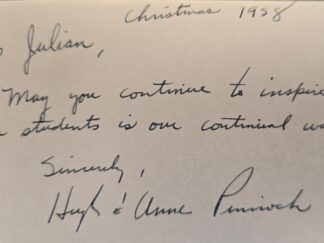 Christmas 1958
Julian,
May you continue to inspire
students is our continual
Sincerely,
Hugh & Anne Pinnock